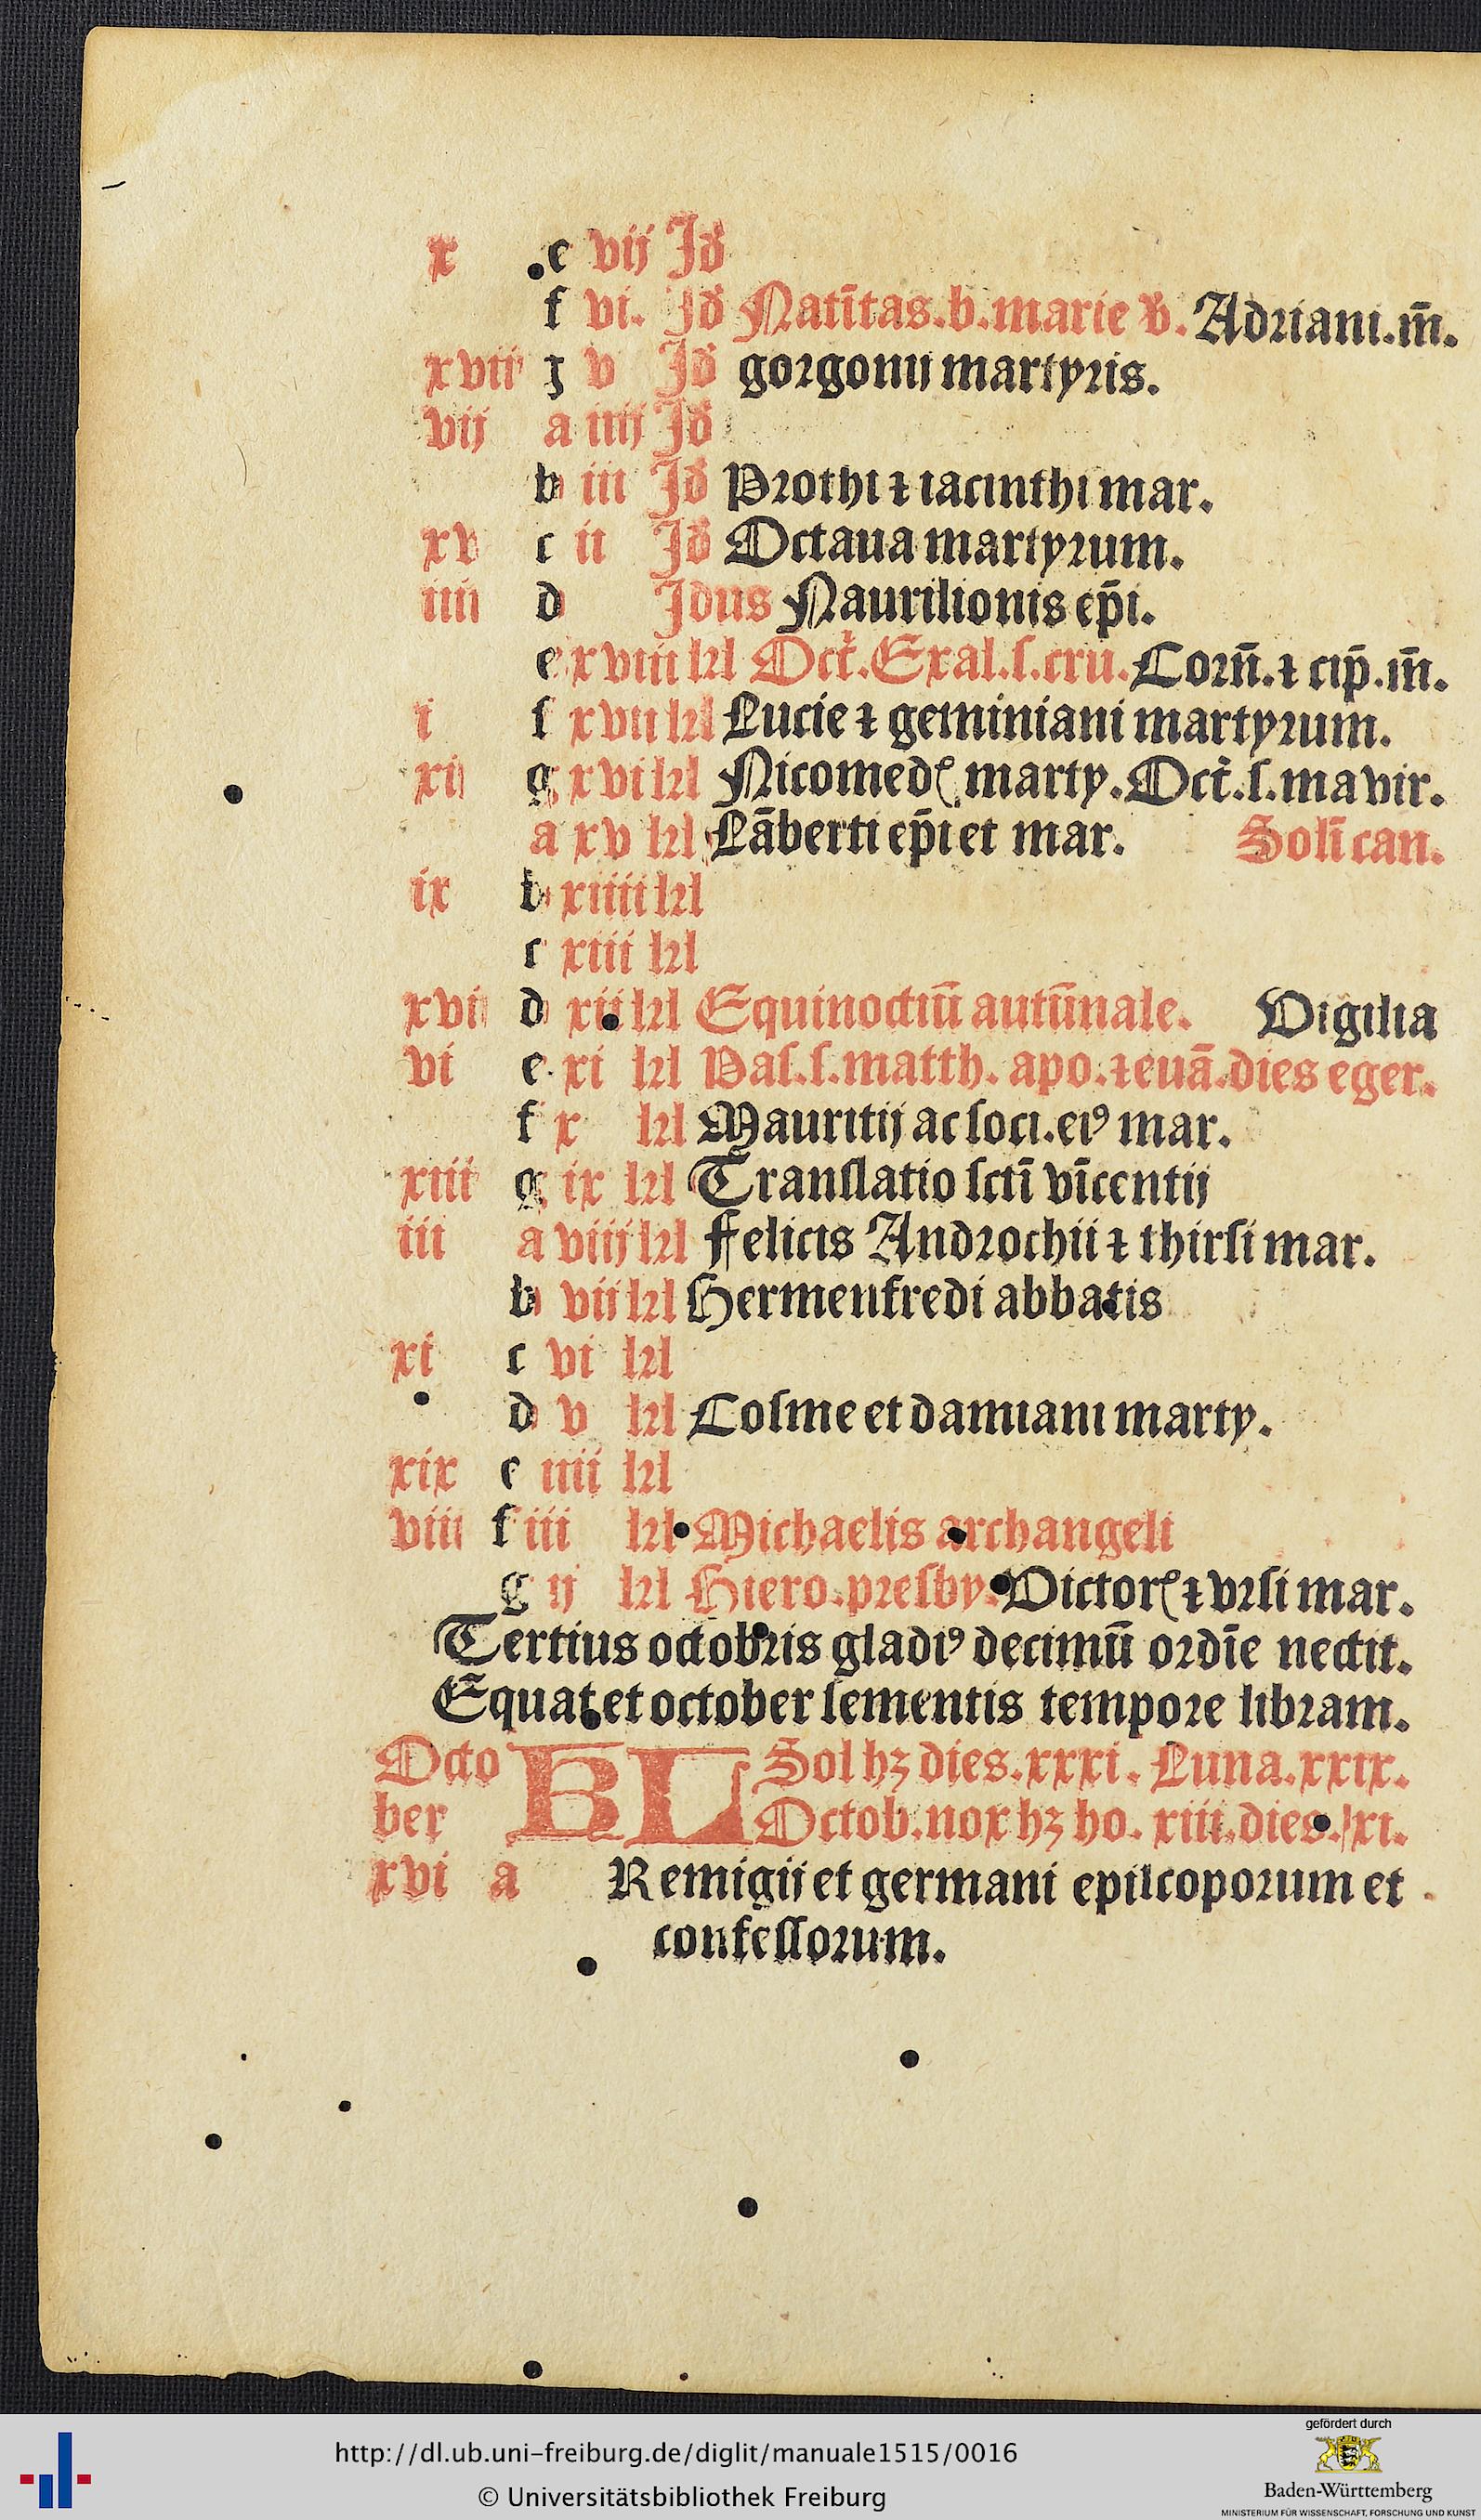 x e vij Jđ
f vi. Jđ Natīitas.b.marie v̄. Adriani.m̄.
xvii g v Jđ gorgonij martyris.
vij a iiij Jđ
b iii Jđ Prothi ⁊ iacinthi mar.
xv c ii Jđ Octaua martyrum.
iiii d Jdus Naurilionis ep̄i.
e xviii kl Oct̄.Exal.ſ.cru. Corn̄.⁊ cip̄.m̄.
i f xvii kl Lucie ⁊ geminiani martyrum.
xij g xvi kl Nicomedꝭ marty.Oct̄.ſ.ma vir.
a xv kl Lāberti ep̄i et mar. Solī can.
ix b xiiii kl
c xiii kl
xvii d xii kl Equinoctiū autūnale. Vigilia
vi e xi kl Paſ.ſ.matth. apo.⁊euā.dies eger.
f x kl Mauritij ac ſoci.eiꝰ mar.
xiiii g ix kl Tranſlatio ſctī vīcentij
iii a viij kl Felicis Androchii ⁊ thirſi mar.
b vii kl Hermenfredi abbatis
xi c vi kl
d v kl Coſme et damiani marty.
xix e iiii kl
viii f iii kl Michaelis archangeli
g ij kl Hiero.presby. Victorꝭ ⁊ vrſi mar.
Tertius octobris gladiꝰ decimū ordīe nectit.
Equat et october ſementis tempore libram.
Octo KL Sol hꝫ dies.xxxi. Luna.xxix.
ber Octob.nox hꝫ ho. xiii.dies. xi.
xvi a Remigij et germani epiſcoporum et
confeſſorum.
http://dl.ub.uni-freiburg.de/diglit/manuale1515/0016
© Universitätsbibliothek Freiburg
gefördert durch
Baden-Württemberg
MINISTERIUM FÜR WISSENSCHAFT, FORSCHUNG UND KUNST